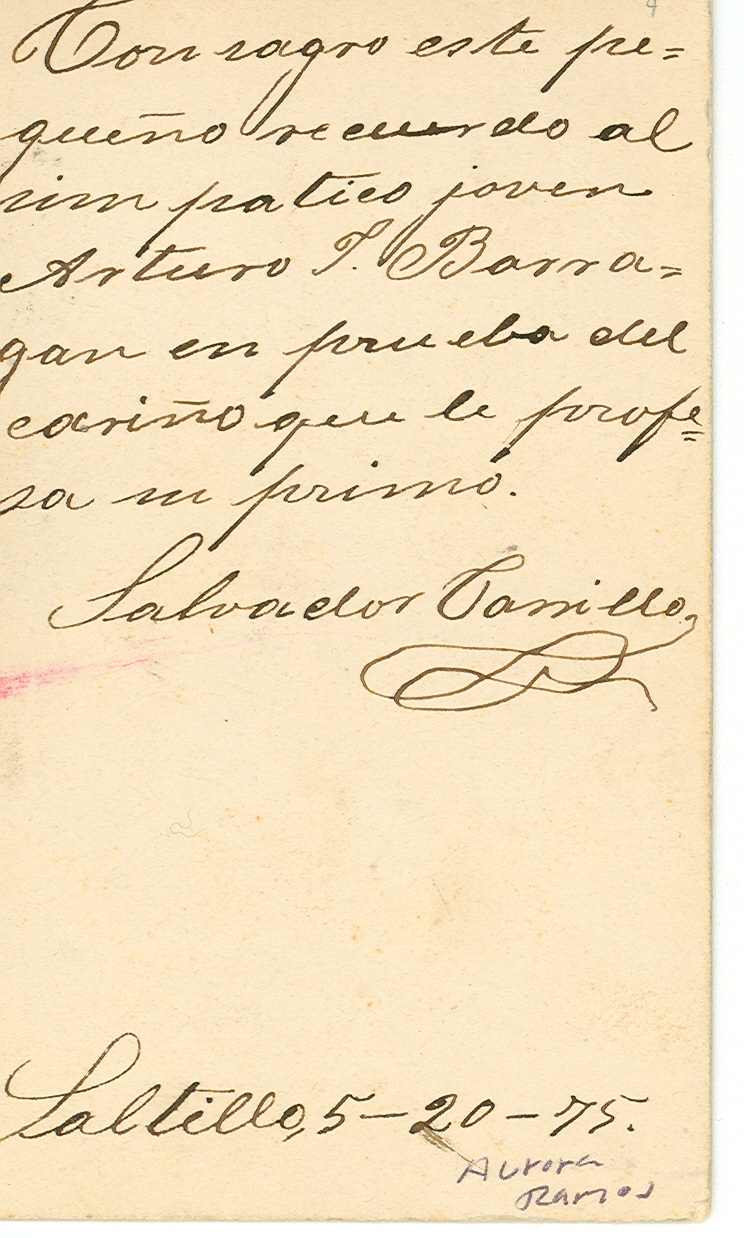 Consagro este pe=
queño recuerdo al
simpatico joven
Arturo T. Barra=
gan en prueba del
cariño que le profe=
sa su primo.
Salvador Carrillo,
Saltillo, 5-20-75.
Aurora
Ramos